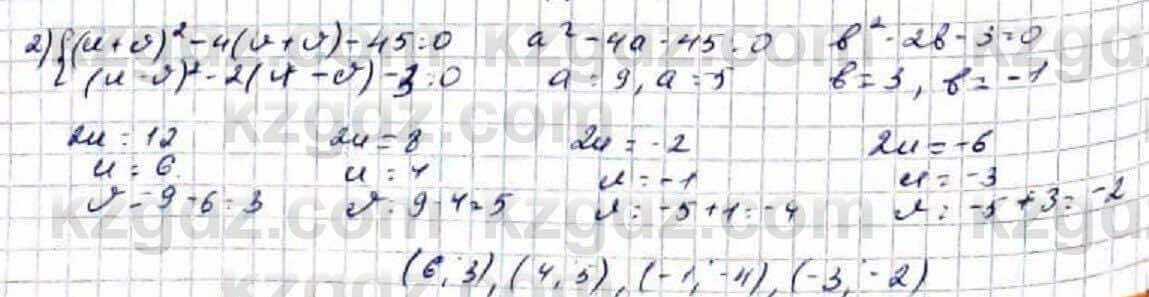 2) { (u+v)² - 4(u+v) - 45 = 0   a² - 4a - 45 = 0   b² - 2b - 3 = 0
(u-v)² - 2(u-v) - 3 = 0   a = 9, a = -5   b = 3, b = -1
2u = 12   2u = 8   2u = -2   2u = -6
u = 6   u = 4   u = -1   u = -3
v = 9 - 6 = 3   v = 9 - 4 = 5   v = -5 + 1 = -4   v = -5 + 3 = -2
(6; 3), (4; 5), (-1; -4), (-3; -2)
kzgdz.com